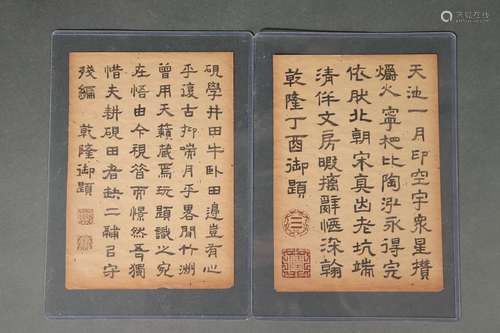 天池一月印空宇衆星攢
爝火寧杷比陶泓永得完
依肰北朝宋真出老坑端
清佯文房暇摛辭愜深翰
乾隆丁酉御題
硯學井田牛卧田邊豈有心
乎復古抑喘月乎畧閒竹洲
曾用天籟藏焉玩題識之宛
在悟由今視昝而憬然吾獨
惜夫耕硯田者缺二酺㠯守
殘編 乾隆御題